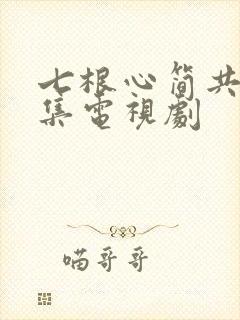 七根心简共
集電視劇
喵哥哥